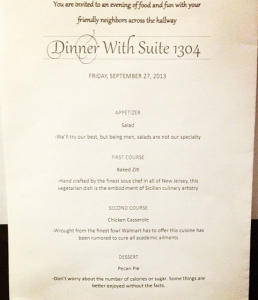 You are invited to an evening of food and fun with your
friendly neighbors across the hallway
Dinner With Suite 1304
FRIDAY, SEPTEMBER 27, 2013
APPETIZER
Salad
-We'll try our best, but being men, salads are not our specialty
FIRST COURSE
Baked Ziti
-Hand crafted by the finest sous chef in all of New Jersey, this
vegetarian dish is the embodiment of Sicilian culinary artistry
SECOND COURSE
Chicken Casserole
-Wrought from the finest fowl Walmart has to offer this cuisine has
been rumored to cure all academic ailments
DESSERT
Pecan Pie
-Don't worry about the number of calories or sugar. Some things are
better enjoyed without the facts.